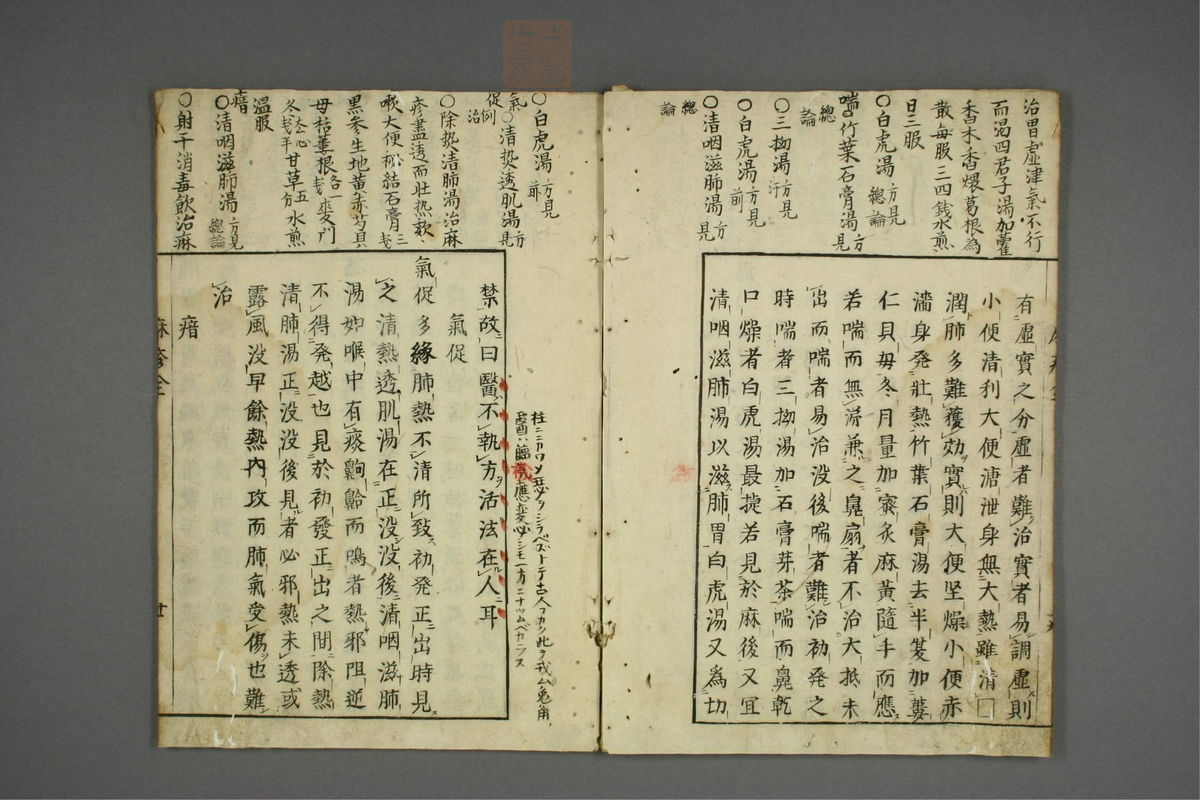 治胃虛津氣不行
而渴四君子湯加藿
香木香煨葛根為
散每服三四錢水煎
日三服
○白虎湯方見總論
喘○竹葉石膏湯方見
總論
○三拗湯方見汗
○白虎湯方見前
○清咽滋肺湯方見
總論
有虛實之分虛者難治實者易調虛則
小便清利大便溏泄身無大熱雖清□
潤肺多難獲効實則大便坚燥小便赤
濇身発壯熱竹葉石膏湯去半夏加蔞
仁貝毋冬月量加蜜炙麻黃隨手而應
若喘而無涕兼之鼻扇者不治大抵未
出而喘者易治没後喘者難治初発之
時喘者三拗湯加石膏芽茶喘而鼻乾
口燥者白虎湯最捷若見於麻後又宜
清咽滋肺湯以滋肺胃白虎湯又為切
○白虎湯方見前
氣促○清㷫透肌湯方見
例治
○除㷫清肺湯治麻
疹盡透而壯热欬
嗽大便秘結石膏三戋
黒參生地黄赤芍貝
母栝蔞根各一戋麥門
冬去心戋半甘草五分水煎
温服
瘖○清咽滋肺湯方見總論
○射干消毒飲治麻
禁故曰醫不執方活法在人耳
氣促
氣促多緣肺熱不清所致初発正出時見
之清熱透肌湯在正没没後清咽滋肺
湯如喉中有痰齁䶎而鳴者熱邪阻逆
不得発越也見於初發正出之間除熱
清肺湯正没没後見者必邪熱未透或
露風没早餘熱內攻而肺氣受傷也難
治
瘖